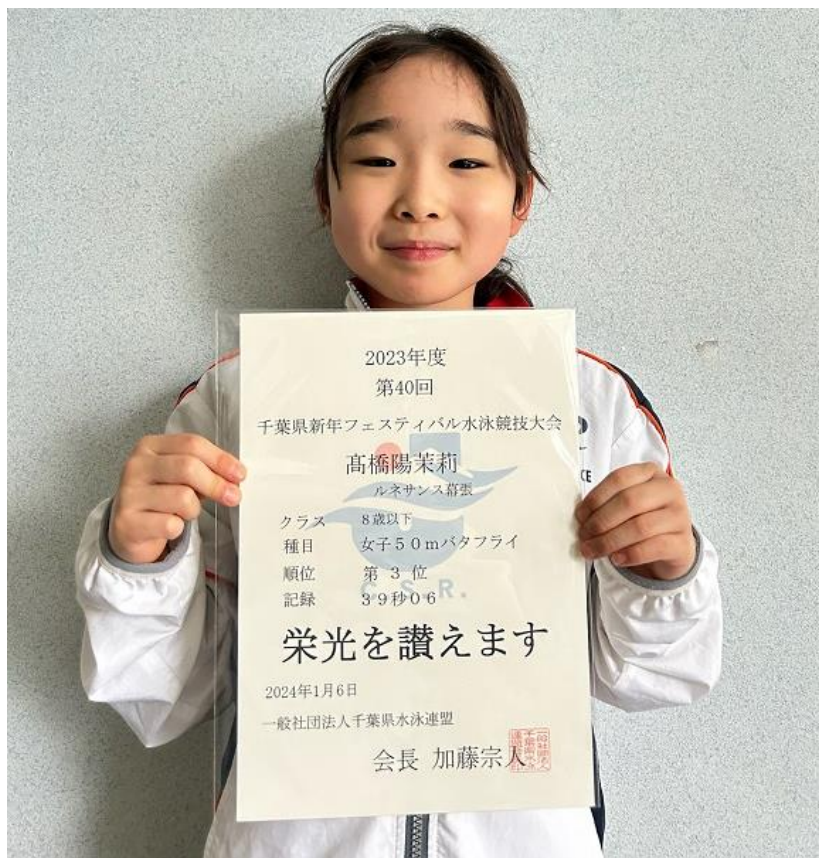 2023年度
第40回
千葉県新年フェスティバル水泳競技大会
髙橋陽茉莉
ルネサンス幕張
クラス 8歳以下
種目 女子50mバタフライ
順位 第 3 位
記録 39秒06
C.S.R.
栄光を讃えます
2024年1月6日
一般社団法人千葉県水泳連盟
会長 加藤宗人